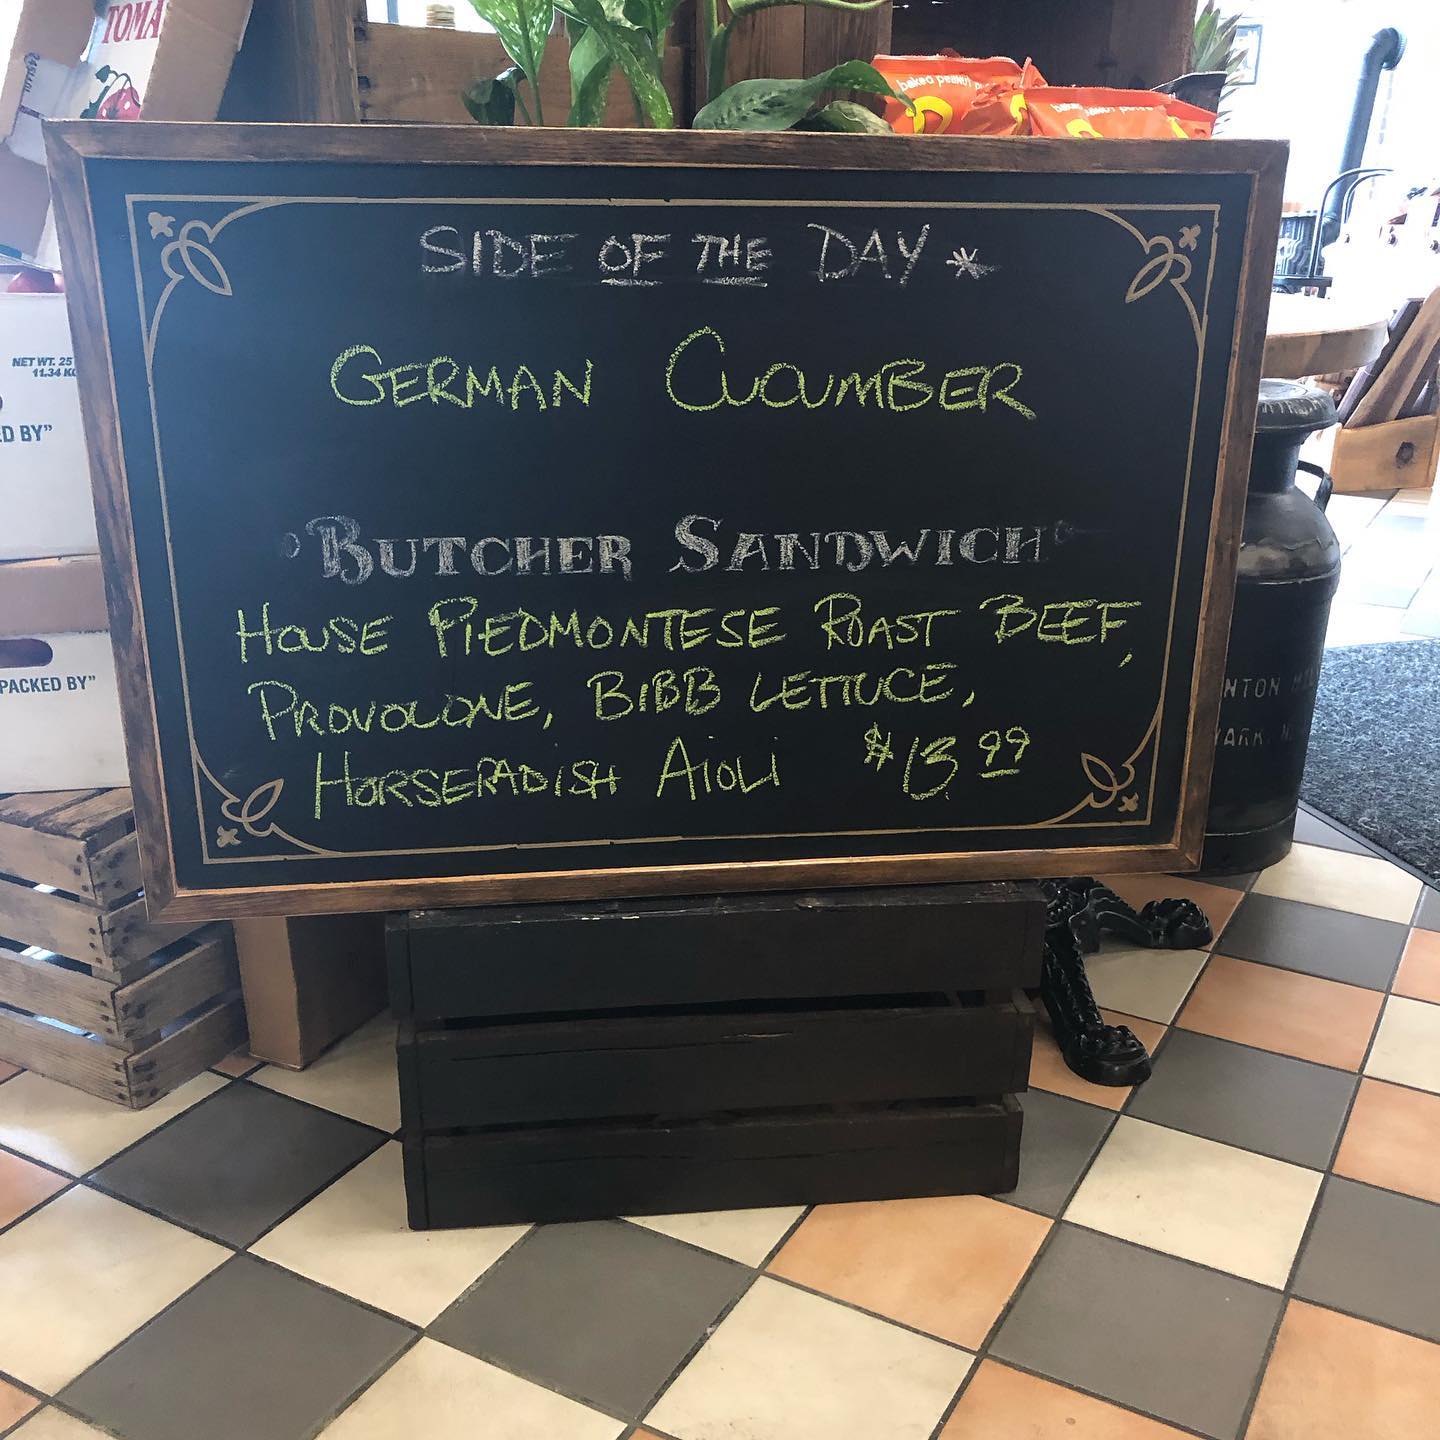 TOMA
baked peanut p
baked peanut puffs
SIDE OF THE DAY *
GERMAN CUCUMBER
NET WT. 25
11.34 KG
D BY"
BUTCHER SANDWICH
HOUSE PIEDMONTESE ROAST BEEF,
PROVOLONE, BIBB LETTUCE,
HORSERADISH AIOLI $13.99
PACKED BY"
NTON MIL